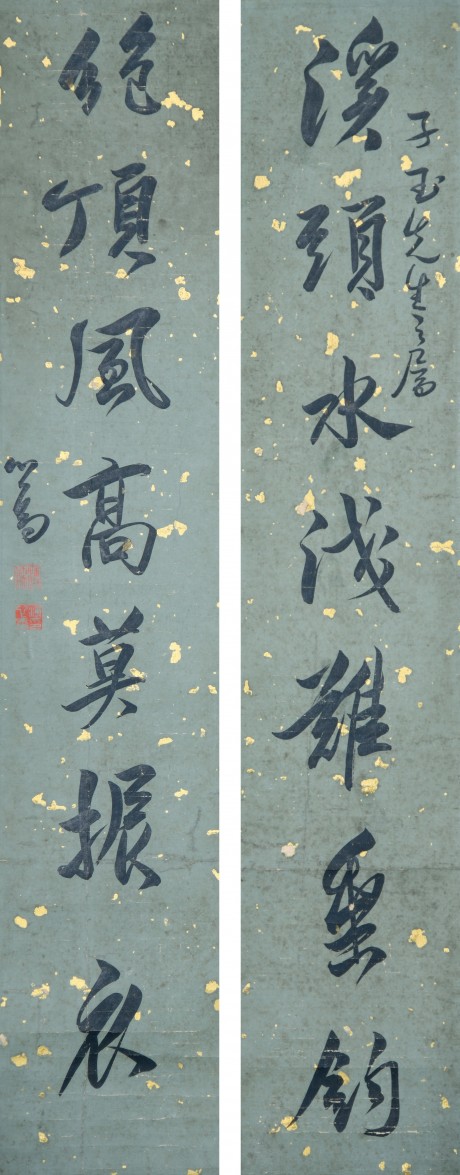 子玉先生之屬
溪頭水淺難垂釣
絕頂風高莫振衣
心畬